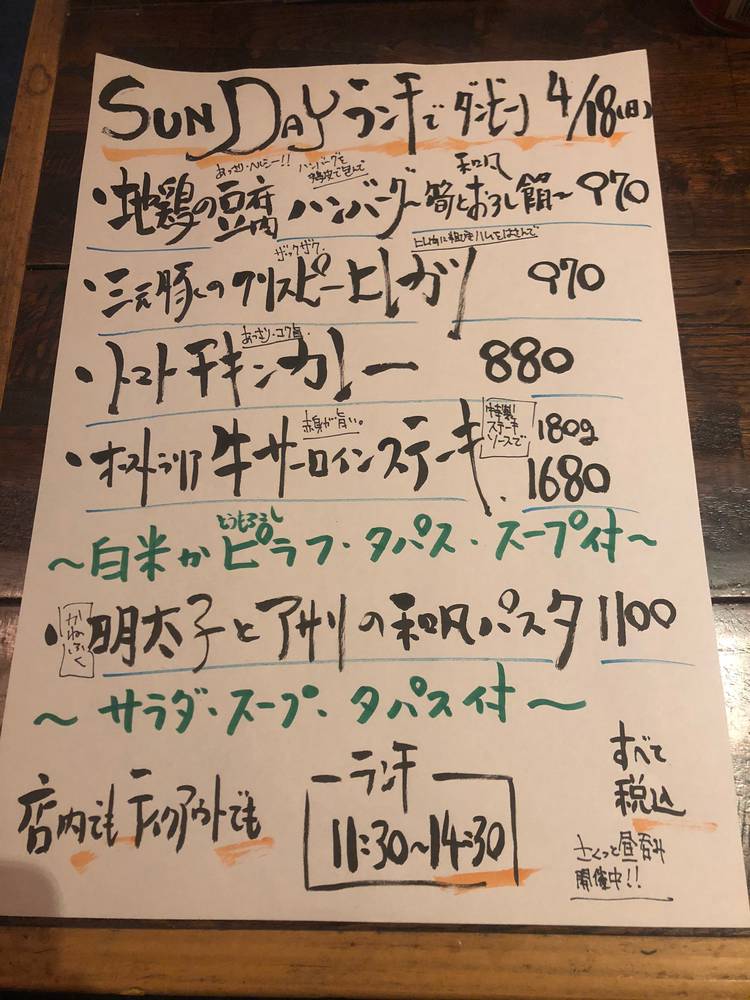 SUNDAY ランチで ダンヒーリ 4/18(日)
あっさりヘルシー!! ハンバーグを鶏皮で包んで
・地鶏の豆腐ハンバーグ 和風 〜筍とおろし餡〜 970
ザックザク
・三元豚のクリスピーヒレカツ 970
あっさり・コク旨
・トマトチキンカレー 880
赤身が旨い。 特製!ステーキソースで
・オーストラリア牛サーロインステーキ 180g 1680
とうもろこし
〜白米かピラフ・タパス・スープ付〜
・かねふく明太子とアサリの和風パスタ 1100
〜サラダ・スープ・タパス付〜
店内でもテイクアウトでも
ランチ
11:30〜14:30
すべて
税込
さくっと昼呑み
開催中!!